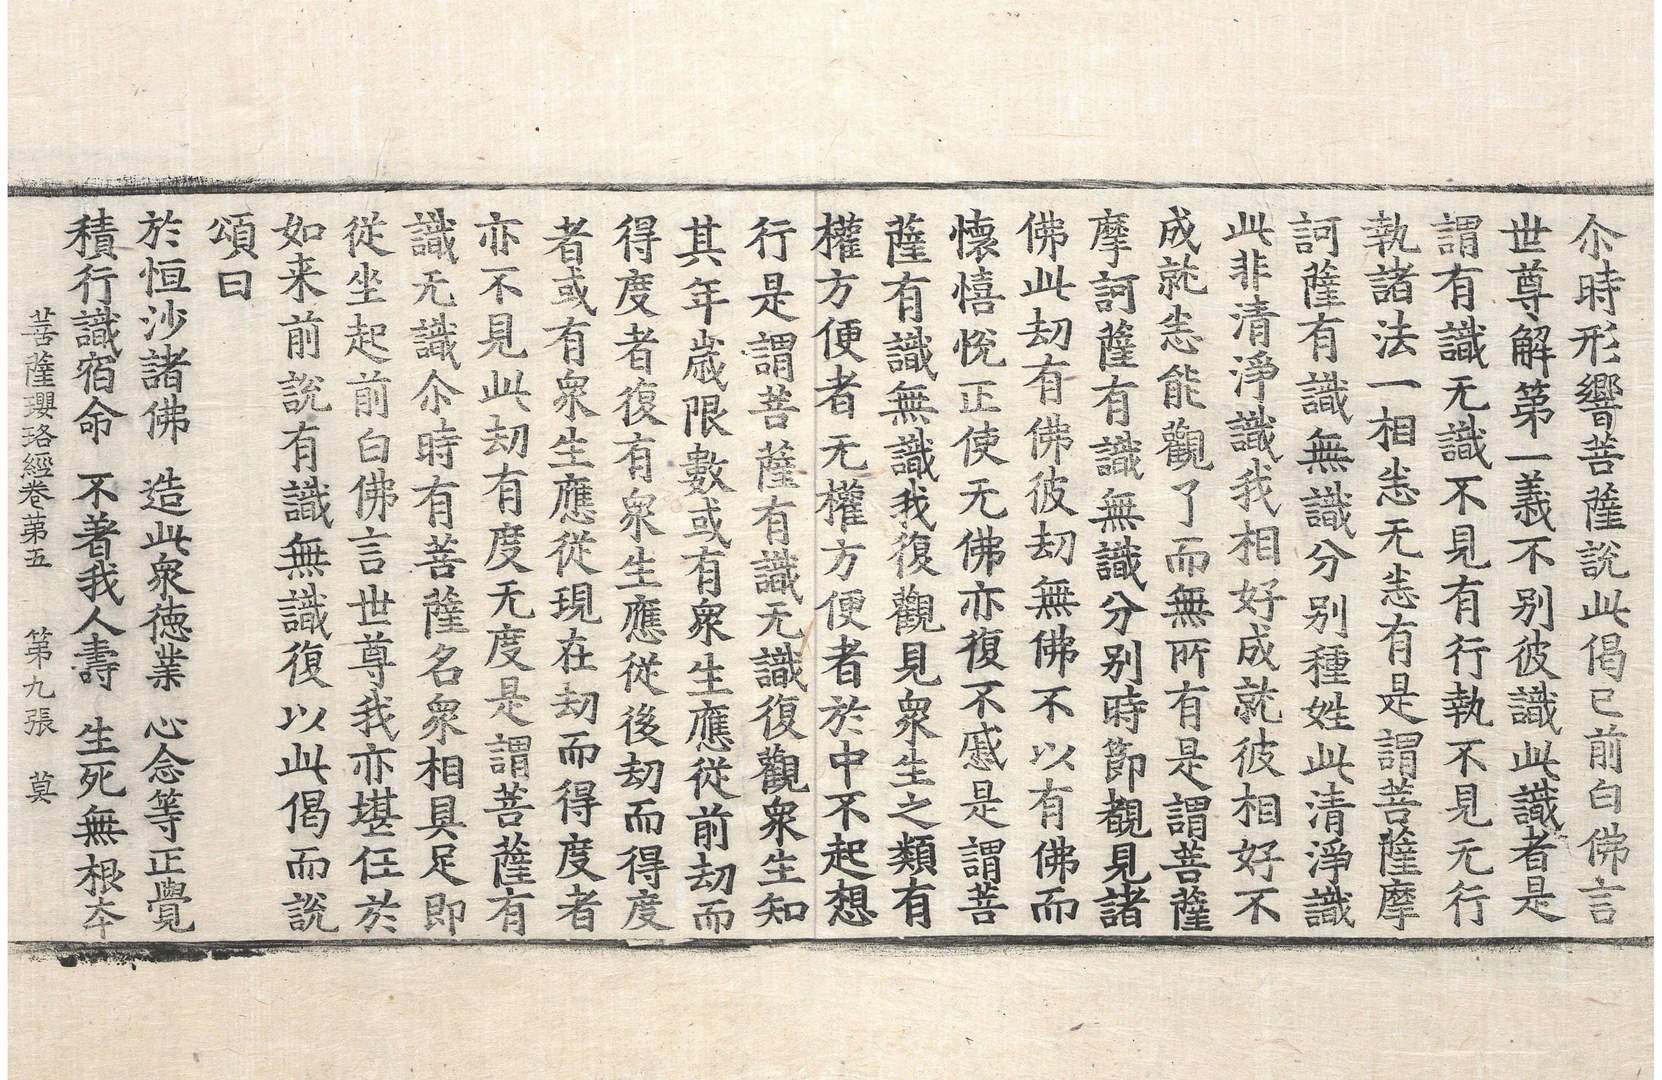 尒時形響菩薩說此偈已前白佛言
世尊解第一義不別彼識此識者是
謂有識无識不見有行執不見无行
執諸法一相恙无恙有是謂菩薩摩
訶薩有識無識分別種姓此清淨識
此非清淨識我相好成就彼相好不
成就恙能觀了而無所有是謂菩薩
摩訶薩有識無識分別時節觀見諸
佛此刼有佛彼刼無佛不以有佛而
懷憘悅正使无佛亦復不慼是謂菩
薩有識無識我復觀見衆生之類有
權方便者无權方便者於中不起想
行是謂菩薩有識无識復觀衆生知
其年歲限數或有衆生應從前刼而
得度者復有衆生應從後刼而得度
者或有衆生應從現在刼而得度者
亦不見此刼有度无度是謂菩薩有
識无識尒時有菩薩名衆相具足即
從坐起前白佛言世尊我亦堪任於
如来前說有識無識復以此偈而說
頌曰
於恒沙諸佛 造此衆德業 心念等正覺
積行識宿命 不著我人壽 生死無根夲
菩薩瓔珞經卷第五 第九張 莫